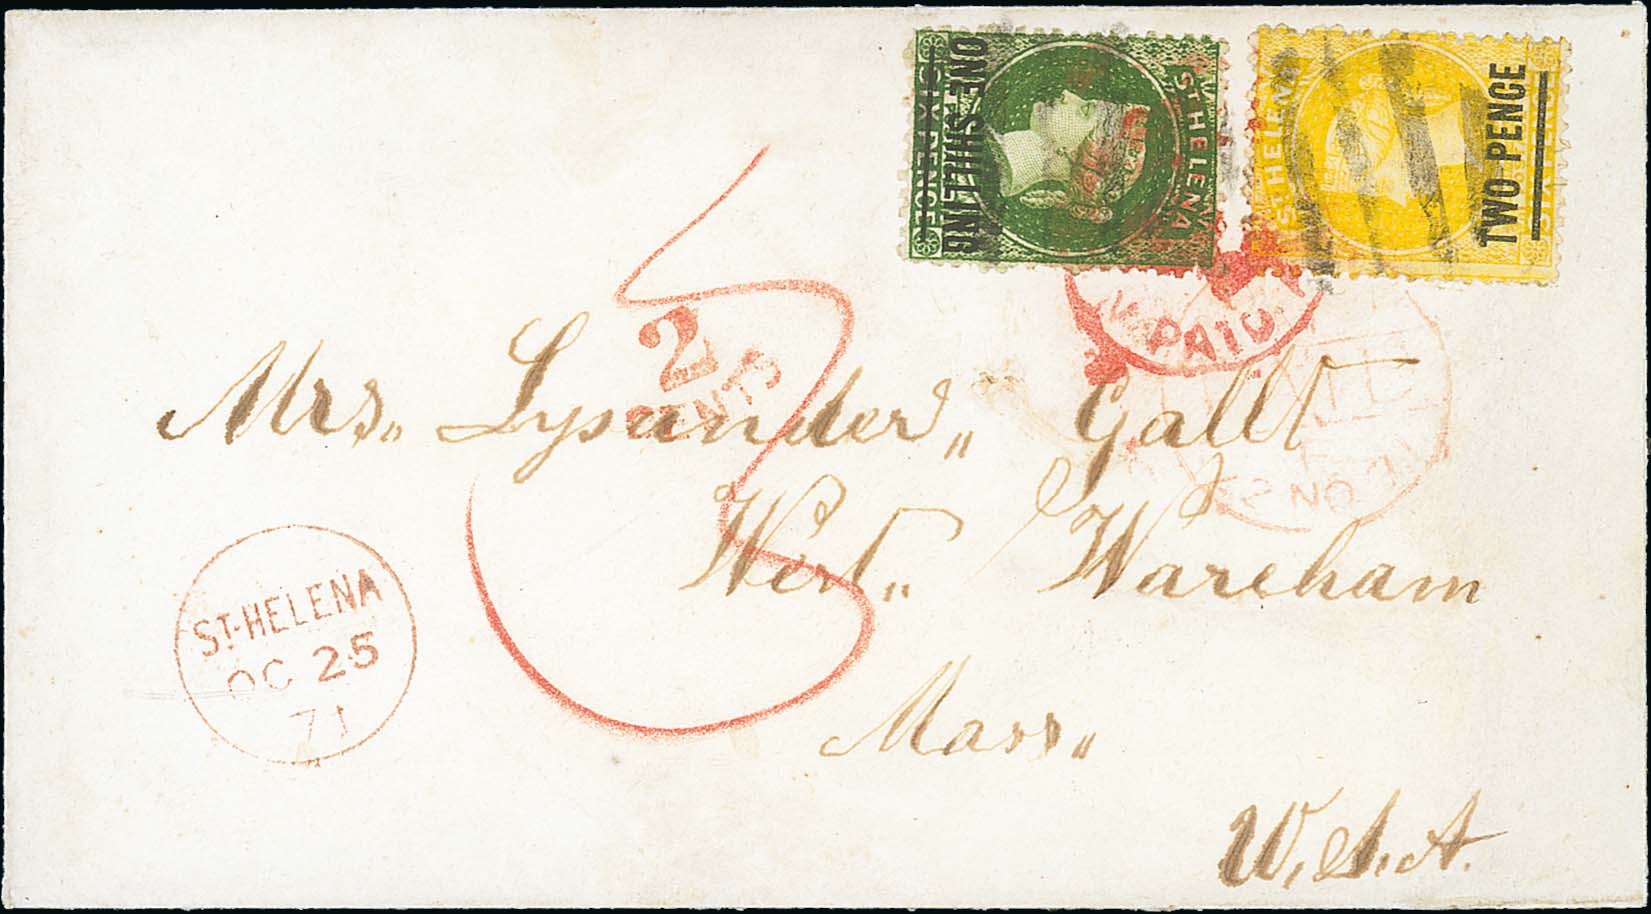 ST HELENA
SIX PENCE
ONE SHILLING
ST HELENA
TWO PENCE
PAID
2
CENTS
Mrs. Lysander Gallt
West Wareham
Mass.
U.S.A.
ST-HELENA
OC 25
71
A